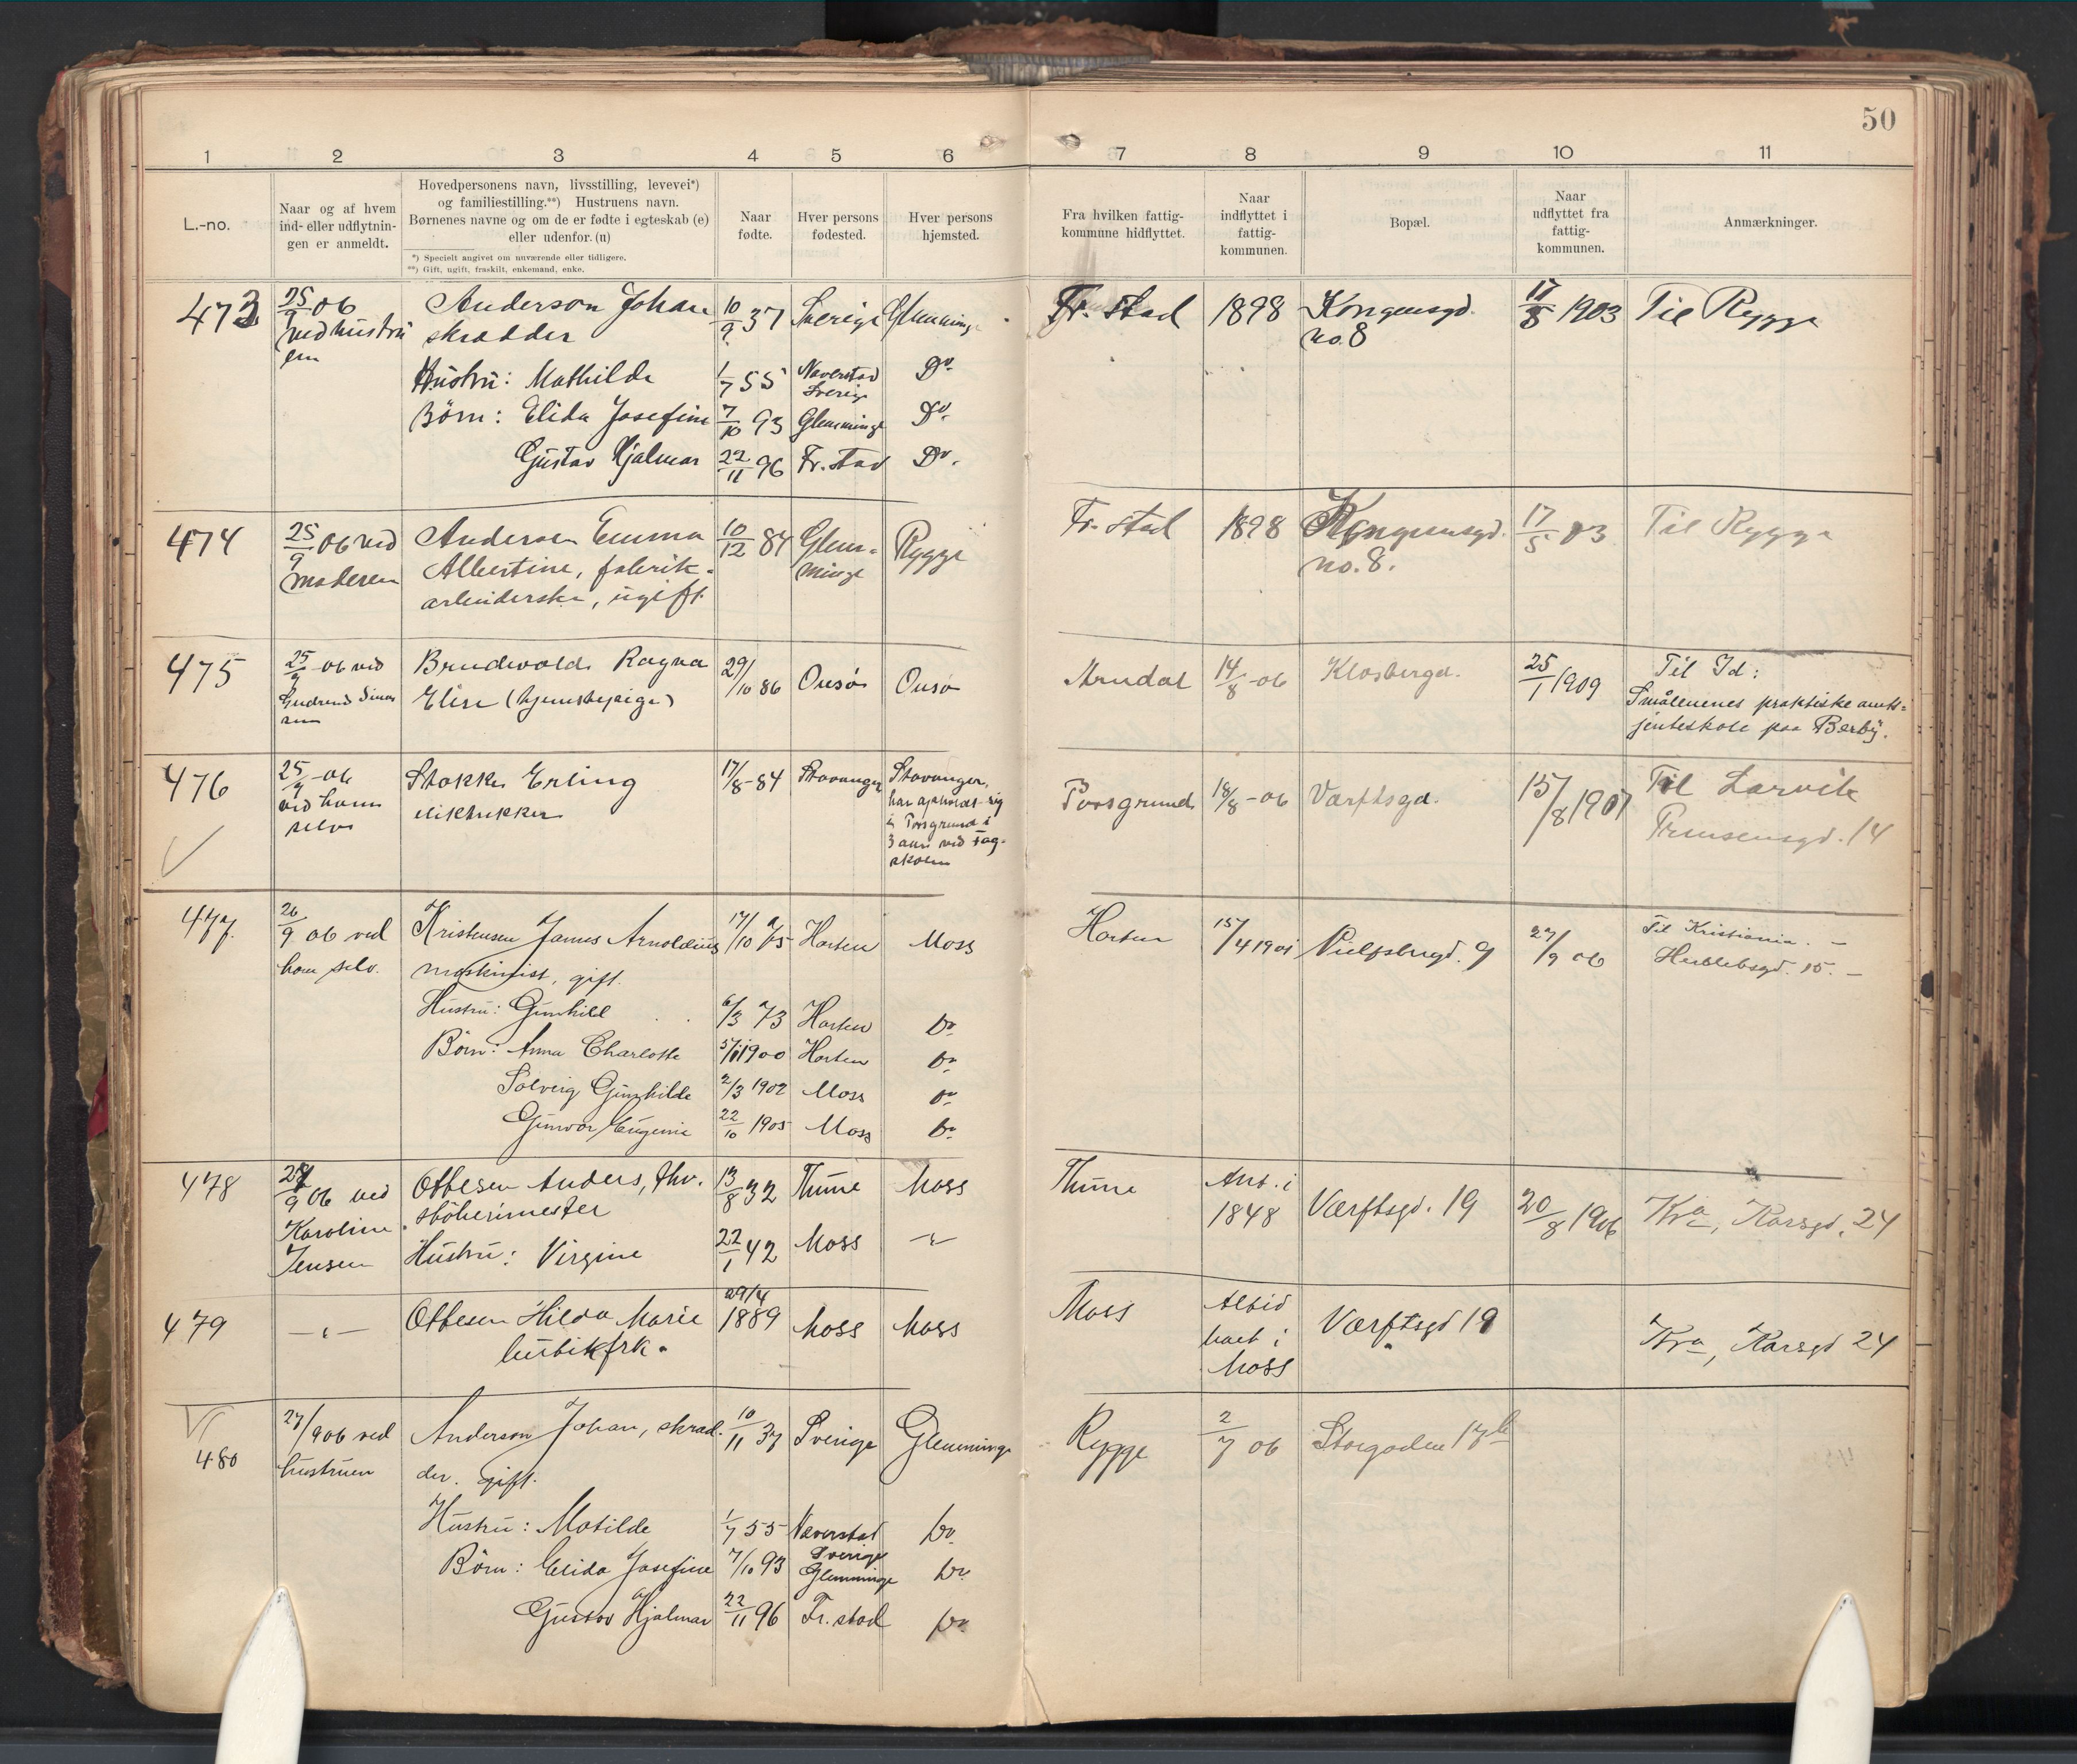 50
1 2 3 4 5 6 7 8 9 10 11
L.-no.
Naar og af hvem
ind- eller udflytnin-
gen er anmeldt.
Hovedpersonens navn, livsstilling, levevei*)
og familiestilling.**) Hustruens navn.
Børnenes navne og om de er fødte i egteskab (e)
eller udenfor. (u)
*) Specielt angivet om nuværende eller tidligere.
**) Gift, ugift, fraskilt, enkemand, enke.
Naar
fødte.
Hver persons
fødested.
Hver persons
hjemsted.
Fra hvilken fattig-
kommune hidflyttet.
Naar
indflyttet i
fattig-
kommunen.
Bopæl.
Naar
udflyttet fra
fattig-
kommunen.
Anmærkninger.
473 25/9 06 Anderson Johan 10/9 37 Sverige Glemminge Fr. stad 1898 Kongensgd. 17/5 1903 Til Rygge
ved hustru skrædder no. 8
en
Hustru: Mathilde 1/7 55 Naverstad Do.
Sverige
Børn: Elida Josefine 7/10 93 Glemminge Do.
Gustav Hjalmar 22/11 96 Fr. stad Do.
474 25/9 06 ved Andersen Emma 10/12 84 Glem- Rygge Fr. stad 1898 Kongensgd. 17/5 03 Til Rygge
moderen Albertine, fabrik- minge no. 8.
arbeiderske, ugift.
475 25/9 06 ved Brudvold Ragna 29/10 86 Onsø Onsø Arendal 14/8 06 Klosbergd. 25/1 1909 Til Id:
Elise (tjenestepige) Smålenenes praktiske amts-
jenteskole paa Berby.
476 25/9 06 Stokke Erling 17/8-84 Stavanger Stavanger, Porsgrund 18/8-06 Værftsgd. 15/8 1907 Til Larvik
ved ham har opholdt sig Prinsensgd. 14
selv i Porsgrund i
3 aar ved fag-
skolen
477. 26/9 06 ved Kristensen James Arnoldius 17/10 75 Horten Moss Horten 15/4 1901 9 27/9 06 Til Kristiania. –
ham selv. maskinist, gift. Herslebsgd. 15. –
Hustru: Gunhild 6/3 73 Horten Do.
Børn: Anna Charlotte 5/11 1900 Horten Do.
Solveig Gunhilde 2/3 1902 Moss Do.
Gunvor Eugenie 22/10 1905 Moss Do.
478 27/9 06 ved Ottesen Anders, fhv. 13/8 32 Thune Moss Thune Ank. i Værftsgd. 19 20/8 1906 Kra, Korsgd. 24
Karoline støberimester 1848
Jensen Hustru: Virgine 22/1 42 Moss –"–
479 –"– Ottesen Hilda Marie 29/4 1889 Moss Moss Moss Altid Værftsgd 19 Kra, Korsgd 24
butikfrk. boet i
Moss
480 27/9 06 ved Anderson Johan, skræd- 10/11 37 Sverige Glemminge Rygge 2/7 06 Storgaden 17b
hustruen der. gift.
Hustru: Matilde 1/7 55 Naverstad Do.
Sverige
Børn: Elida Josefine 7/10 93 Glemminge Do.
Gustav Hjalmar 22/11 96 Fr. stad Do.